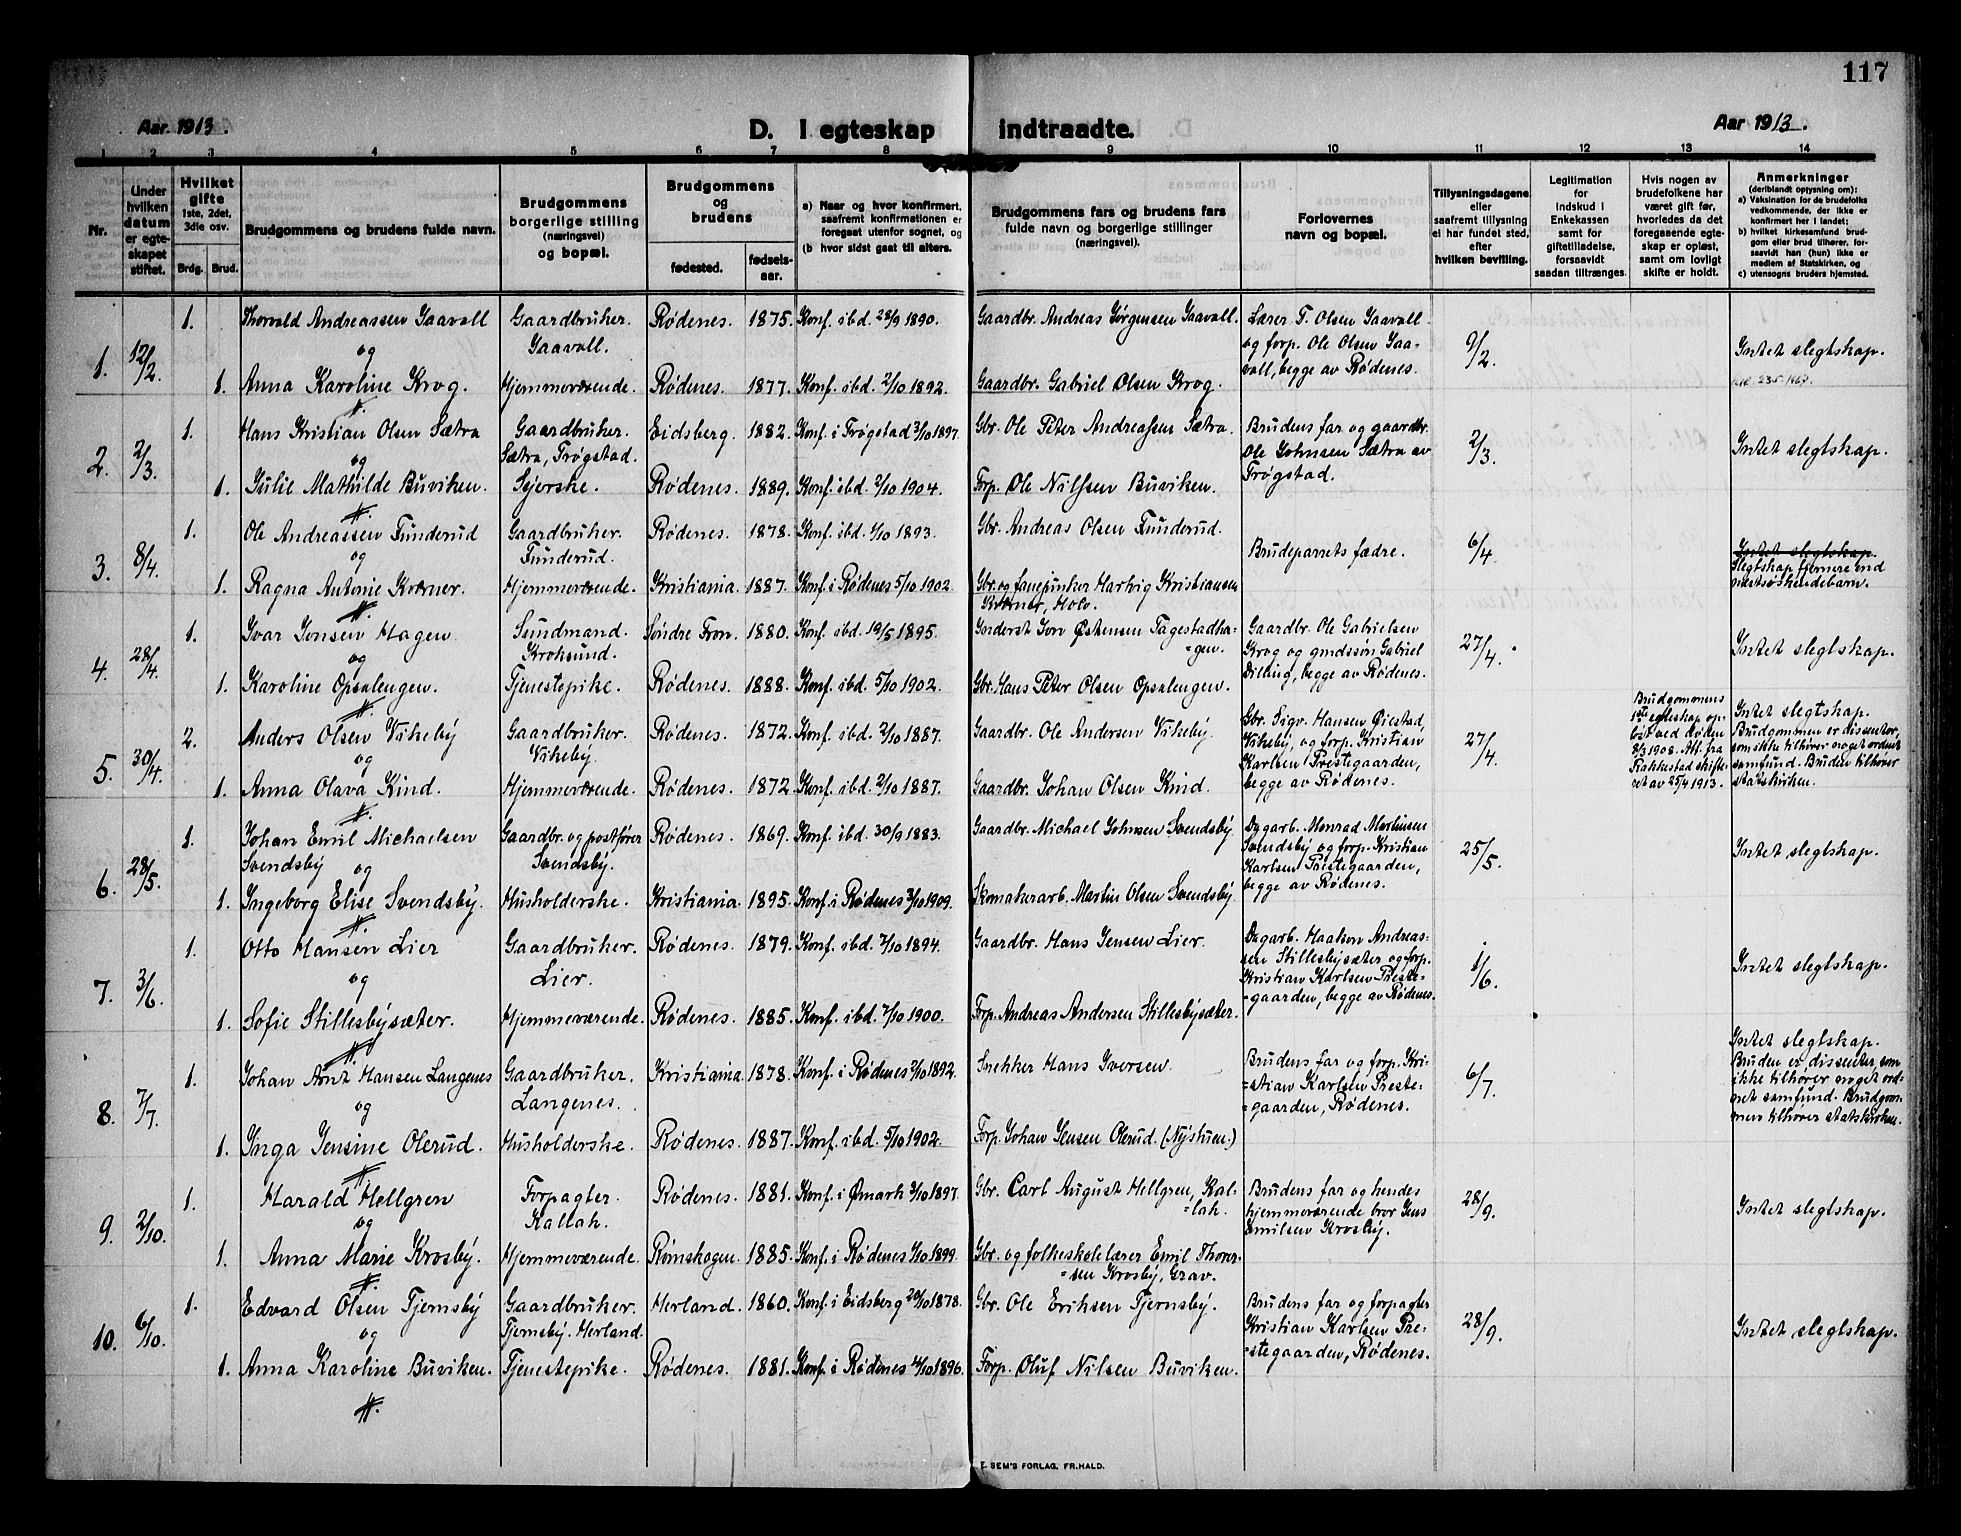 117
Aar. 1913.
D. I egteskap indtraadte.
Aar 1913.
1 2 3 4 5 6 7 8 9 10 11 12 13 14
Nr.
Under hvilken datum er egteskapet stiftet.
Hvilket gifte
1ste, 2det, 3die osv.
Brdg. Brud.
Brudgommens og brudens fulde navn.
Brudgommens borgerlige stilling (næringsvei) og bopæl.
Brudgommens og brudens
fødested.
fødsels-aar.
a) Naar og hvor konfirmert, saafremt konfirmationen er foregaat utenfor sognet, og
(b hvor sidst gaat til alters.
Brudgommens fars og brudens fars fulde navn og borgerlige stillinger (næringsvei).
Forlovernes navn og bopæl.
Tillysningsdagene eller saafremt tillysning ei har fundet sted, efter hvilken bevilling.
Legitimation for indskud i Enkekassen samt for giftetilladelse, forsaavidt saadan tiltrænges.
Hvis nogen av brudefolkene har været gift før, hvorledes da det foregaaende egteskap er opløst, samt om lovligt skifte er holdt.
Anmerkninger
(deriblandt optysning om):
a) Vaksination for de brudefolks vedkommende, der ikke er konfirmert her i landet;
b) hvilket kirkesamfund brudgom eller brud tilhører, forsaavidt han (hun) ikke er medlem af Statskirken, og
c) utensogns bruders hjemsted.
1. 12/2. 1. Thorvald Andreassen Gaavoll Gaardbruker. Gaavoll. Rødenes. 1875. Konf. ibd. 28/9 1890. Gaardbr. Andreas Jørgensen Gaavoll. Lærer T. Olsen Gaavoll og forp. Ole Olsen Gaavoll, begge av Rødenes. 9/2. Intet slegtskap.
og
1. Anna Karoline Krog. Hjemmeværende. Rødenes. 1877. Konf. ibd. 2/10 1892. Gaardbr. Gabriel Olsen Krog.
2. 2/3. 1. Hans Kristian Olsen Sætra Gaardbruker. Sætra, Trøgstad. Eidsberg. 1882. Konf. i Trøgstad 3/10 1897. Gbr. Ole Peter Andreassen Sætra. Brudens far og gaardbr. Ole Johnsen Sætra av Trøgstad. 2/3. Intet slegtskap.
og
1. Julie Mathilde Buviken. Syerske. Rødenes. 1889. Konf. ibd. 2/10 1904. Forp. Ole Nilssen Buviken.
3. 8/4. 1. Ole Andreassen Funderud Gaardbruker. Funderud. Rødenes. 1878. Konf. ibd. 1/10 1893. Gbr. Andreas Olsen Funderud. Brudeparrets fædre. 6/4. Intet slegtskap. Slegtskap fjernere end næstsøskendebarn.
og
1. Ragna Antonie Kværner. Hjemmeværende. Kristiania. 1887. Konf. i Rødenes 5/10 1902. Gbr. og fanejunker Hartvig Kristiansen Kværner, Holo.
4. 28/4. 1. Ivar Jensen Hagen Sundmand. Kroksund. Søndre Fron. 1880. Konf. ibd. 19/5 1895. Inderst Østensen Fagestadhagen. Gaardbr. Ole Gabrielsen Krog og gmdssøn Gabriel Dilling, begge av Rødenes. 27/4. Intet slegtskap.
og
1. Karoline Opsalengen. Tjenestepike. Rødenes. 1888. Konf. ibd. 5/10 1902. Gbr. Hans Peter Olsen Opsalengen.
5. 30/4. 2. Anders Olsen Vikeby Gaardbruker. Vikeby. Rødenes. 1872. Konf. ibd. 2/10 1887. Gaardbr. Ole Andersen Vikeby. Gbr. Sigv. Hansen Øiestad, Vikeby, og forp. Kristian Karlsen Prestegaarden, begge av Rødenes. 27/4. Brudgommens 1ste egteskap opløst ved døden 8/3 1908. Att. fra Rakkestad skifteret av 25/4 1913. Intet slegtskap. Brudgommen er dissenter, som ikke tilhører noget ordnet samfund. Bruden tilhører statskirken.
og
1. Anna Olava Kind. Hjemmeværende. Rødenes. 1872. Konf. ibd. 2/10 1887. Gaardbr. Johan Olsen Kind.
6. 28/5. 1. Johan Emil Michaelsen Svendsby Gaardbr. og postfører Svendsby. Rødenes. 1869. Konf. ibd. 30/9 1883. Gaardbr. Michael Johnsen Svendsby Dagarb. Monrad Martinsen Svendsby og forp. Kristian Karlsen Prestegaarden, begge av Rødenes. 25/5. Intet slegtskap.
og
1. Ingeborg Elise Svendsby. Husholderske. Kristiania. 1895. Konf. i Rødenes 3/10 1909. Skomakerarb. Martin Olsen Svendsby.
7. 3/6. 1. Otto Hansen Lier Gaardbruker. Lier. Rødenes. 1879. Konf. ibd. 7/10 1894. Gaardbr. Hans Jensen Lier. Dagarb. Haakon Andreassen Stillesbysæter og forp. Kristian Karlsen Prestegaarden, begge av Rødenes. 1/6. Intet slegtskap.
og
1. Sofie Stillesbysæter. Hjemmeværende. Rødenes. 1885. Konf. ibd. 7/10 1900. Forp. Andreas Andersen Stillesbysæter.
8. 7/7. 1. Johan Arnt Hansen Langenes Gaardbruker. Langenes. Kristiania. 1878. Konf. i Rødenes 2/10 1892. Snekker Hans Iversen Brudens far og forp. Kristian Karlsen Prestegaarden, Rødenes. 6/7. Intet slegtskap. Bruden er dissenter, som ikke tilhører noget ordnet samfund. Brudgommen tilhører statskirken.
og
1. Inga Jensine Olerud. Husholderske. Rødenes. 1887. Konf. ibd. 5/10 1902. Forp. Johan Jensen Olerud. (Nystuen.)
9. 2/10. 1. Harald Hellgren Forpagter. Kallak. Rødenes. 1881. Konf. i Ømark 3/10 1897. Gbr. Carl August Hellgren, Kallak. Brudens far og hendes hjemmeværende bror Jens Emilsen Krosby. 28/9. Intet slegtskap.
og
1. Anna Marie Krosby. Hjemmeværende. Rømskogen. 1885. Konf. i Rødenes 1/10 1899. Gbr. og folkeskolelærer Emil Thoresen Krosby, Grav.
10. 6/10. 1. Edvard Olsen Tjernsby Gaardbruker. Tjernsby. Herland. Herland. 1860. Konf. i Eidsberg 20/10 1878. Gbr. Ole Eriksen Tjernsby. Brudens far og forpagter Kristian Karlsen Prestegaarden, Rødenes. 28/9. Intet slegtskap.
og
1. Anna Karoline Buviken. Tjenestepike. Rødenes. 1881. Konf. i Rødenes 4/10 1896. Forp. Oluf Nilsen Buviken.
F. SEM'S FORLAG, FR.HALD.